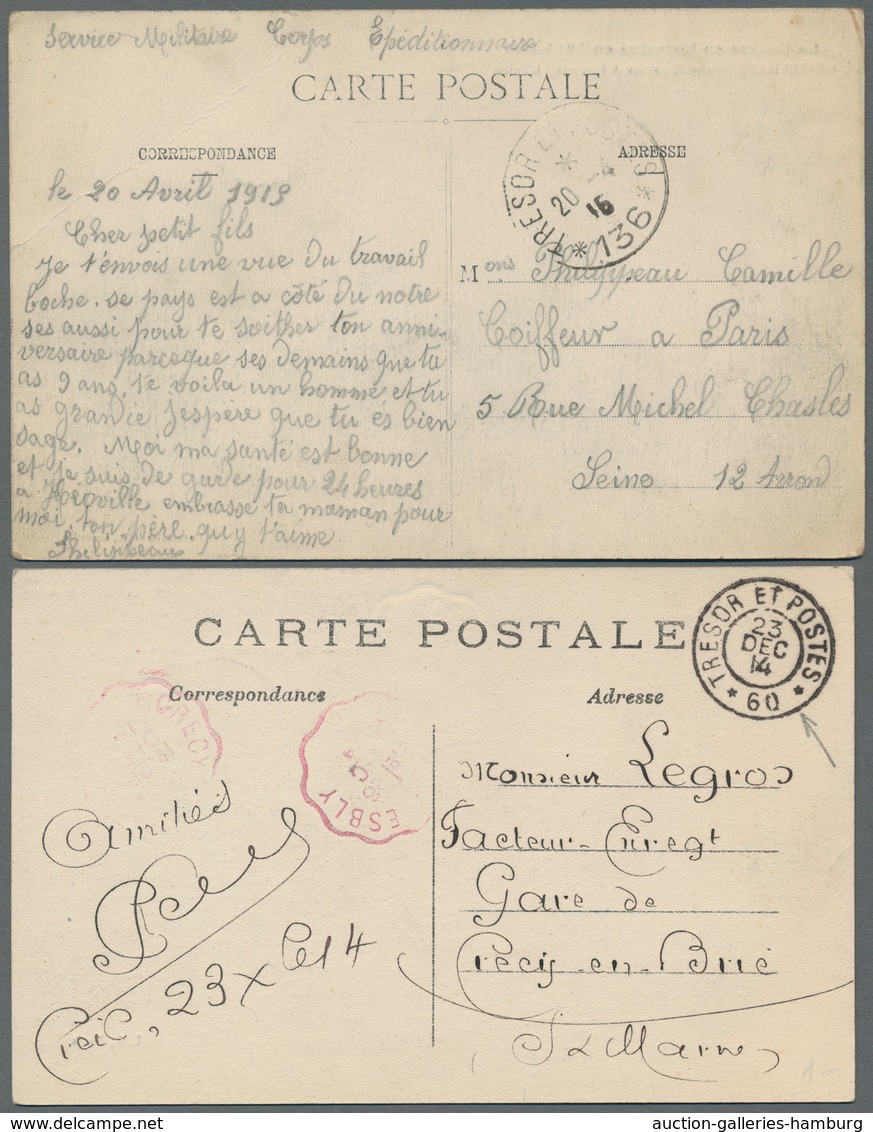 Service Militaire Corps Epéditionnaire
CARTE POSTALE
CORRESPONDANCE
ADRESSE
TRESOR ET POSTES
* 136 *
20 -4
15
le 20 Avril 1915
Cher petit fils
Je t'envois une vue du travail
boche. se pays est a côté du notre
ses aussi pour te soither ton anni-
versaire parceque ses demains que tu
as 9 ans, te voila un homme et tu
as grandie J'espère que tu es bien
sage. Moi ma santé est bonne
et je suis de garde pour 24 heures
a Heoville embrasse ta maman pour
moi, ton père quy t'aime
Mons Philippeau Camille
Coiffeur a Paris
5 Rue Michel Chasles
Seine 12 Arrond
CARTE POSTALE
Correspondance
Adresse
TRESOR ET POSTES
23
DEC
14
* 60 *
CRECY
ESBLY
Amitiés
Creil, 23 Xbre 14
Monsieur Legros
Facteur-Enregt
Gare de
Crécy-en-Brie
S & Marne
1-
auction-galleries-hamburg